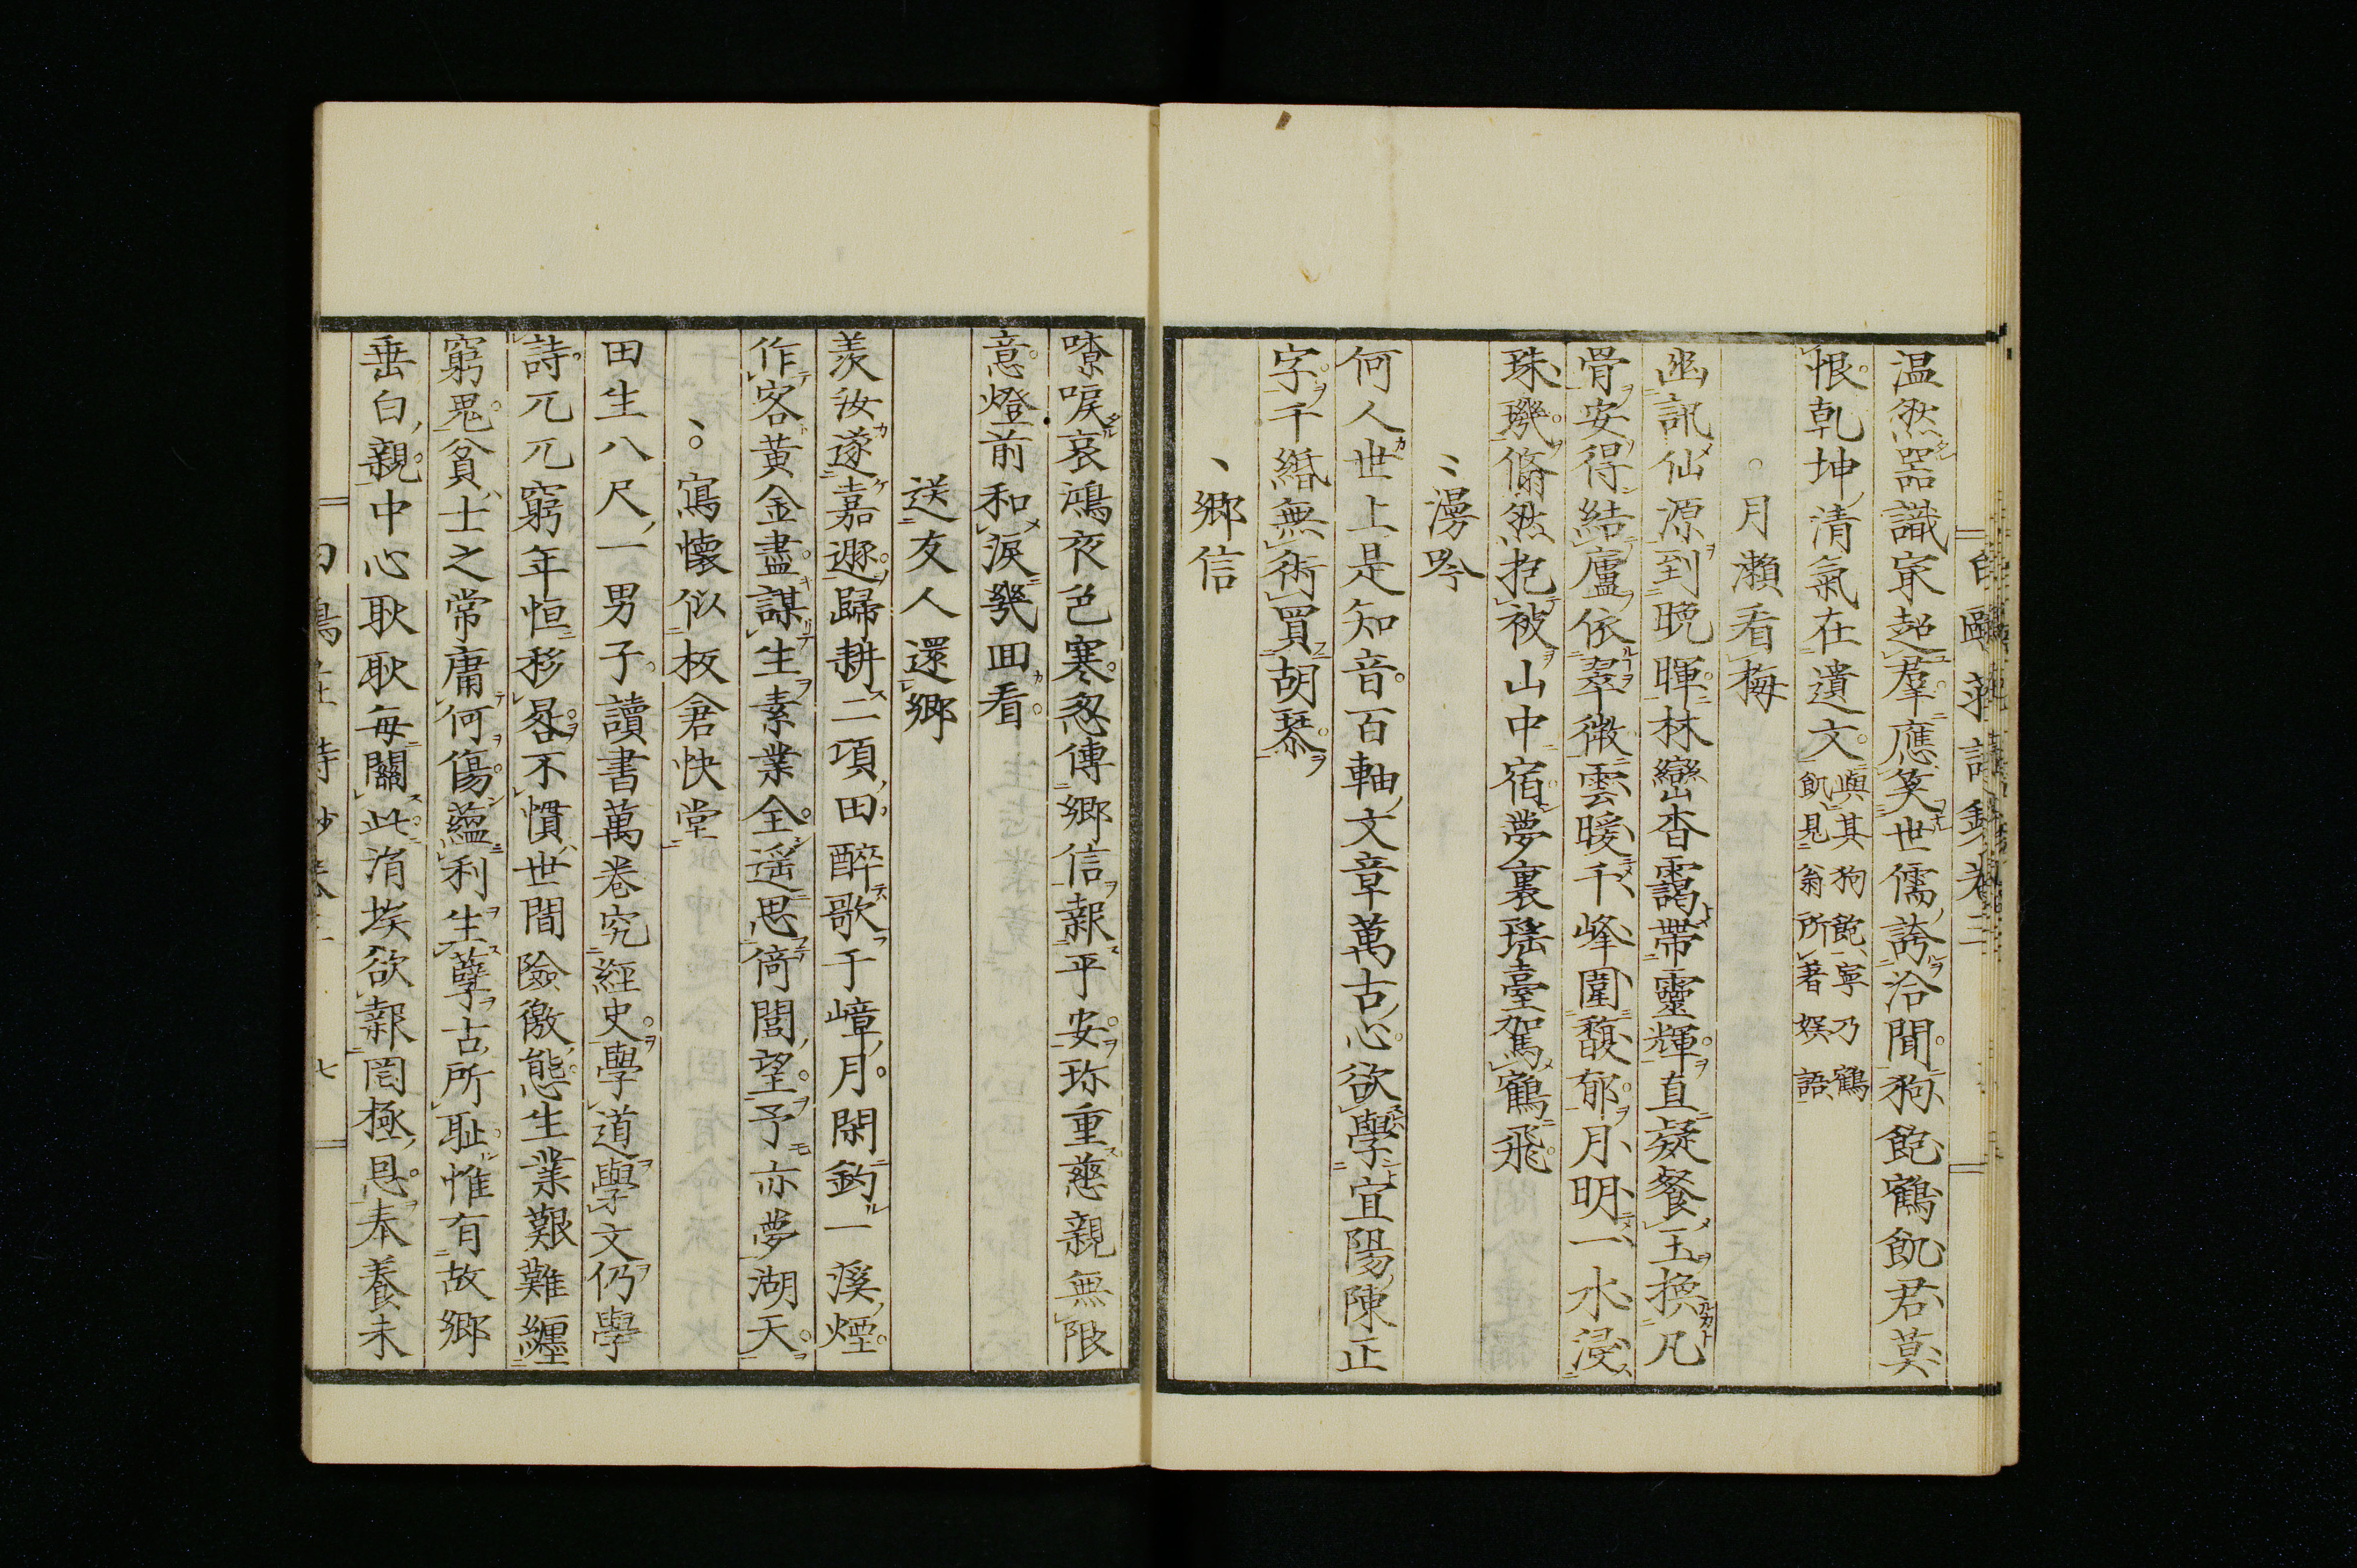 温然器識最超羣應笑世儒誇洽聞狗飽鶴飢君莫
恨乾坤清氣在遺文與其狗飽寧乃鶴
飢見翁所著娯語
月瀬看梅
幽訊仙源到晩暉林巒杳靄帶靈輝直疑餐玉換凡
骨安得結廬依翠微雲暖千峰圍馥郁月明一水浸
珠璣翛然抱被山中宿夢裏瑤臺駕鶴飛
漫吟
何人世上是知音百軸文章萬古心欲學宜陽陳正
字千緡無術買胡琴
鄉信
嘹唳哀鴻夜色寒忽傳鄉信報平安珎重慈親無限
意燈前和淚幾回看
送友人還鄉
羨汝遂嘉遯歸耕二項田醉歌千嶂月閑釣一溪煙
作客黃金盡謀生素業全遥思倚閭望予亦夢湖天
寫懷似板倉快堂
田生八尺一男子讀書萬卷究經史學道學文仍學
詩兀兀窮年恒移晷不慣世間險徼態生業艱難纒
窮鬼貧士之常庸何傷蘊利生孽古所耻惟有故鄉
垂白親中心耿耿每關此涓埃欲報罔極恩奉養未
七